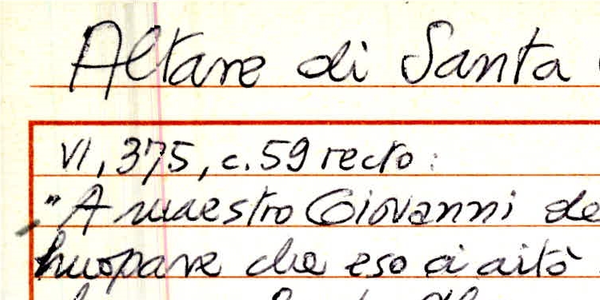 Altare di Santa
VI, 375, c. 59 recto:
"A maestro Giovanni de
che eso ci aitò